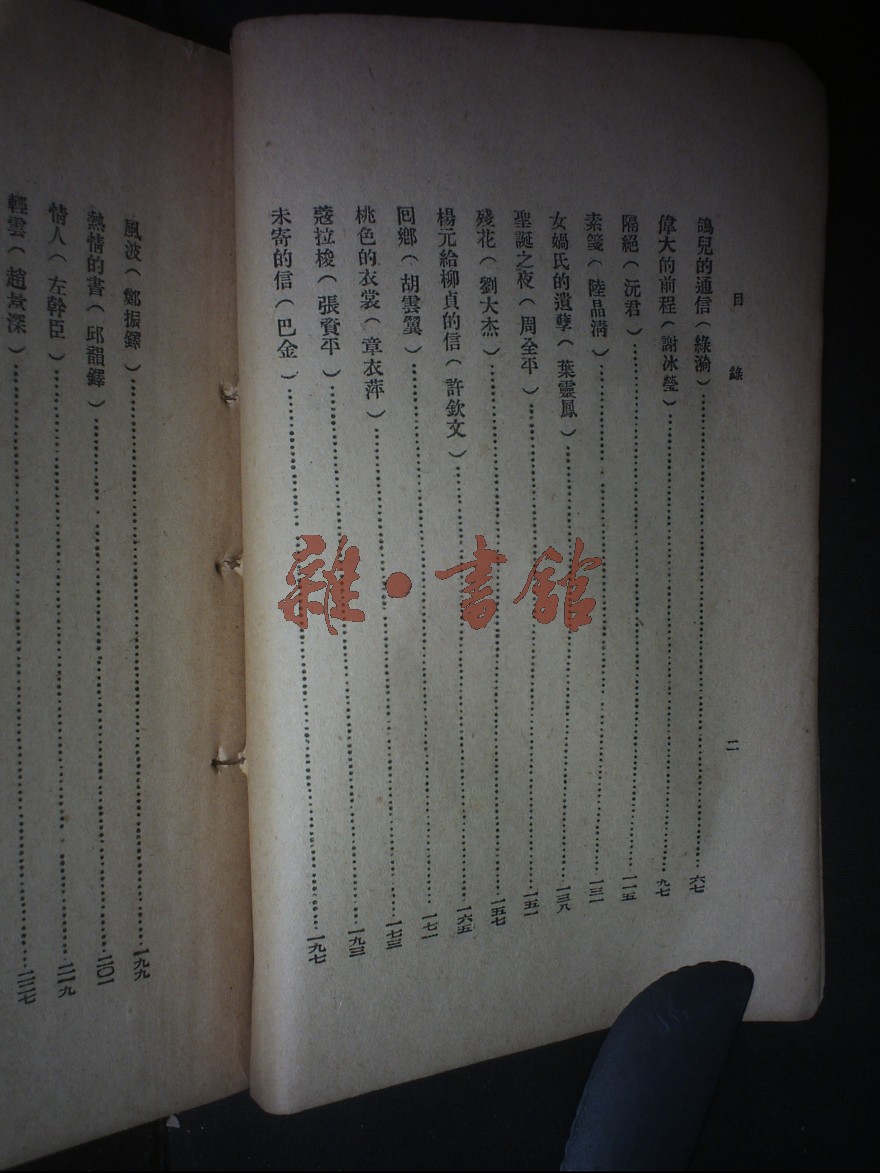 目錄
二
鴿兒的通信（綠漪）……六七
偉大的前程（謝冰瑩）……九七
隔絕（沅君）……一一五
素箋（陸晶清）……一三一
女媧氏的遺孽（葉靈鳳）……一三八
聖誕之夜（周全平）……一五一
殘花（劉大杰）……一五七
楊元給柳貞的信（許欽文）……一六五
回鄉（胡雲翼）……一七一
桃色的衣裳（章衣萍）……一七三
蔻拉梭（張資平）……一九三
未寄的信（巴金）……一九七
風波（鄭振鐸）……一九九
熱情的書（邱韻鐸）……二〇一
情人（左幹臣）……二一九
輕雲（趙景深）……二三七
雜·書館